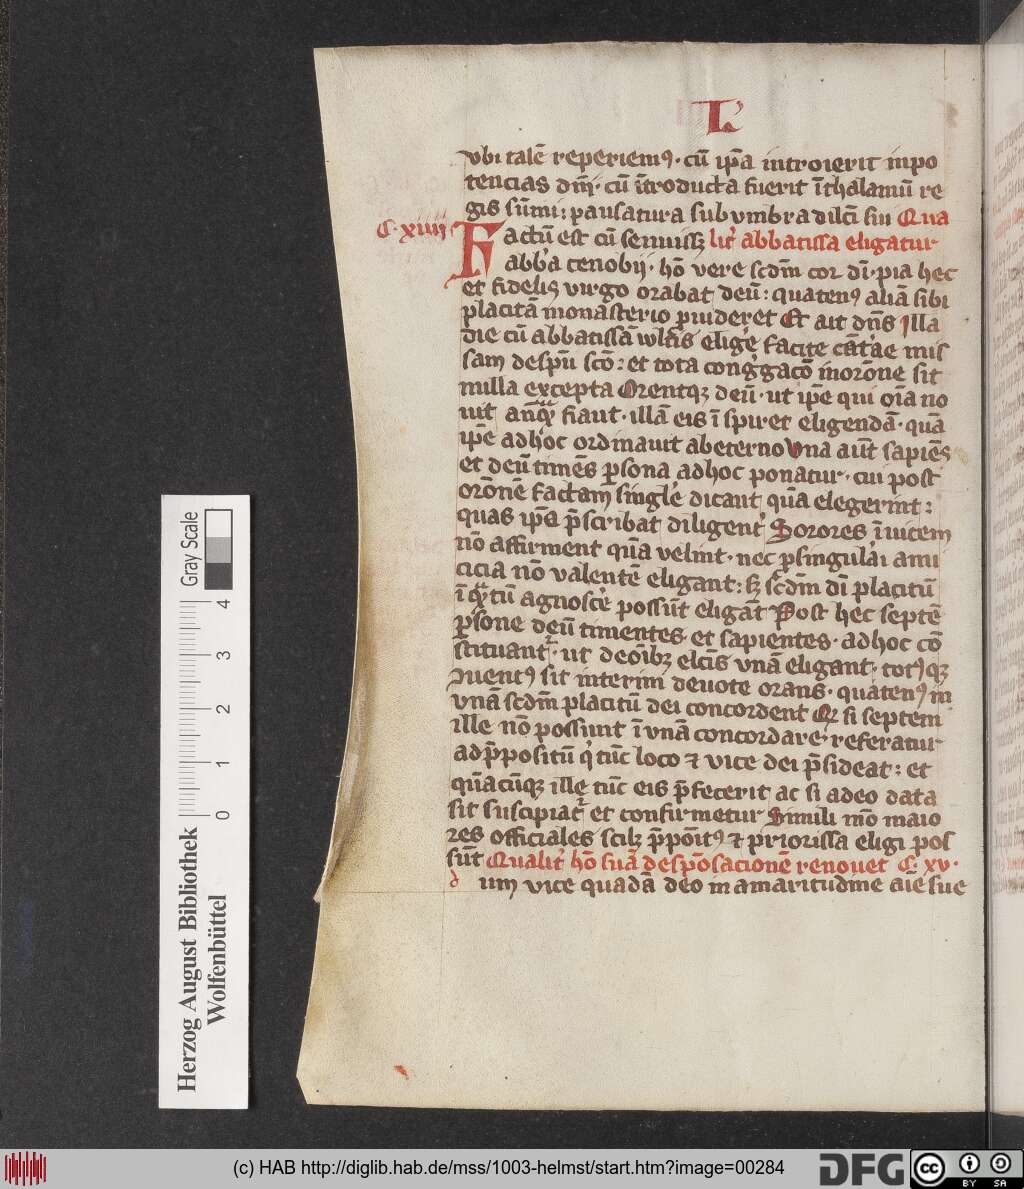 L
vbi talē reperiemꝰ · cū ip̄a introierit inpo
tencias dn̄i · cū ītroducta fuerit ī thalamū re
gis sūmi : pausatura sub vmbra dilc̄i sui Qua
C · xiiii Factū est cū lit̓ abbatissa eligatur
abb̄a cenobij · hō vere scdm̄ cor dī · pia hec
et fidelis virgo orabat deū : quatenꝰ aliā sibi
placitā monasterio ꝓuideret Et ait dn̄s Illa
die cū abbatissā wltis eligere facite cātare mis
sam de spū scō : et tota congregacō in orōne sit
nulla excepta Orentqꝫ deū · ut ip̄e qui oīa no
uit anteqᷓ fiant · illā eis ī spiret eligendā · quā
ip̄e ad hoc ordinauit ab eterno Vna aūt sapiēs
et deū timēs ꝑsona ad hoc ponatur · cui post
orōnē factam single dicant quā elegerint :
quas ip̄a p̄scribat diligent̓ Sorores īuicem
nō affirment quā velint · nec ꝑ singulari ami
cicia nō valentē eligant : sꝫ scdm̄ dī placitū
ī qᷓtū agnosce̓ possūt eligāt Post hec septē
ꝑsone deū timentes · et sapientes · ad hoc cō
stituantᷣ · ut de oībꝫ elc̄is vnā eligant · totꝰqꝫ
ꝯuentꝰ sit interim deuote orans · quatenꝰ in
vnā scdm̄ placitū dei concordent Qr si septem
ille nō possunt ī vnā concordare · referatur
ad p̄positū q̓ tūc loco ⁊ vice dei p̄sideat : et
quācūqꝫ ille tūc eis p̄fecerit ac si a deo data
sit suscipiatᷣ et confirmetur Simili mō maio
res officiales scilꝫ p̄pōitꝰ ⁊ priorissa eligi pos
sūt Qualit̓ hō suā desponsacionē renouet C · xv ·
d um vice quadā deo in amaritudine aīe sue
Herzog August Bibliothek
Wolfenbüttel
0 1 2 3 4
Gray Scale
(c) HAB http://diglib.hab.de/mss/1003-helmst/start.htm?image=00284
DFG
cc BY SA